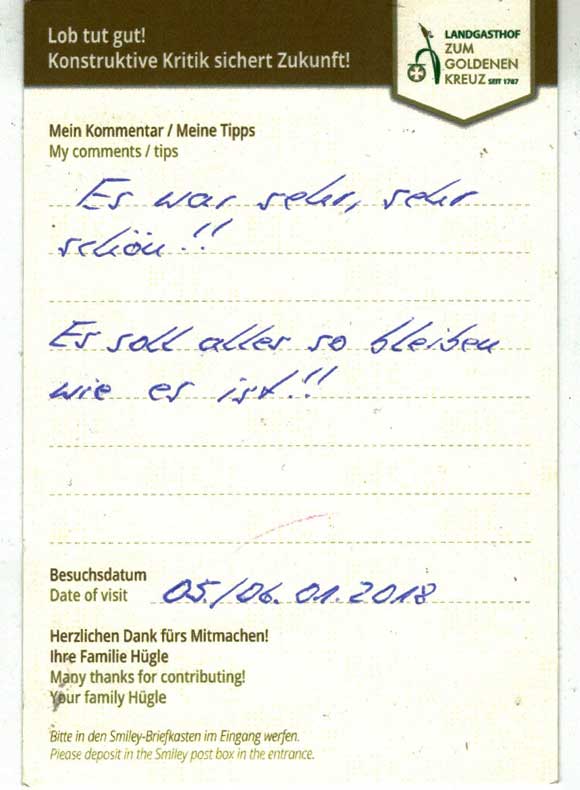 Lob tut gut!
Konstruktive Kritik sichert Zukunft!
LANDGASTHOF
ZUM
GOLDENEN
KREUZ SEIT 1787
Mein Kommentar / Meine Tipps
My comments / tips
Es war sehr, sehr
schön!!
Es soll alles so bleiben
wie es ist!!
Besuchsdatum
Date of visit 05./06.01.2018
Herzlichen Dank fürs Mitmachen!
Ihre Familie Hügle
Many thanks for contributing!
Your family Hügle
Bitte in den Smiley-Briefkasten im Eingang werfen.
Please deposit in the Smiley post box in the entrance.